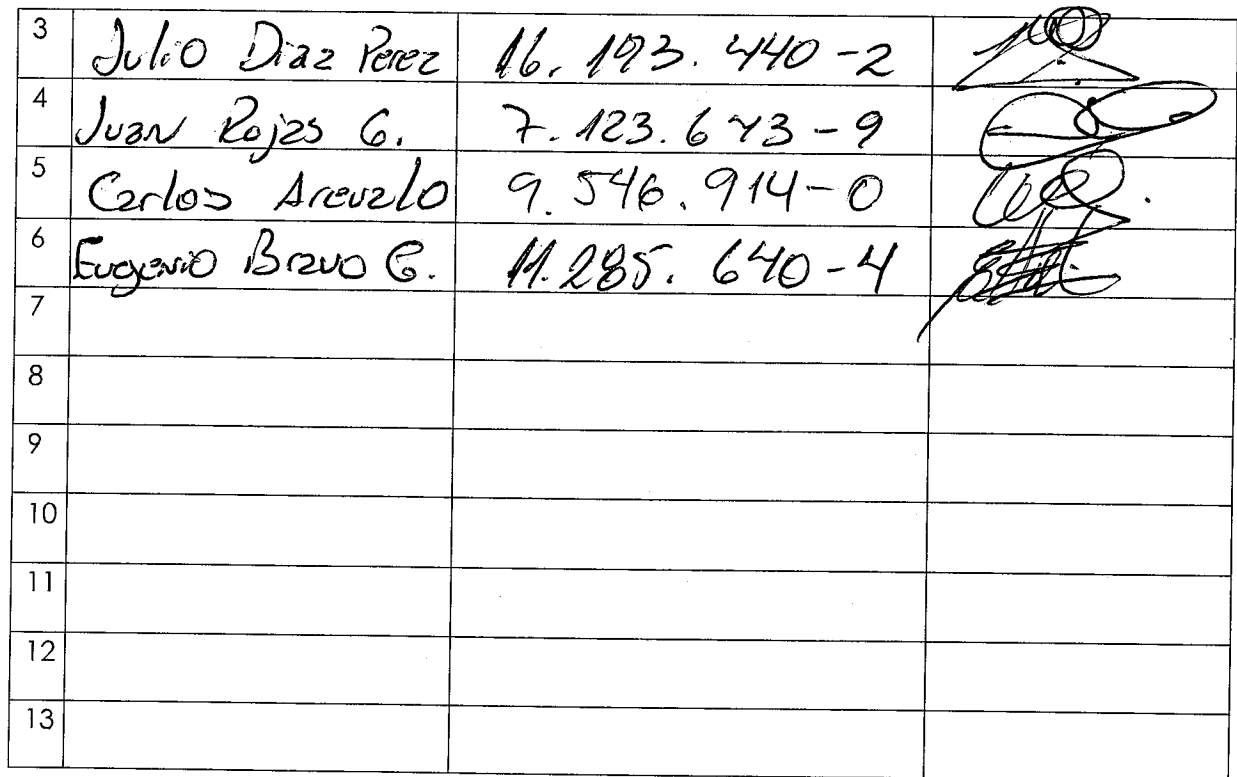 3 Julio Diaz Perez 16.193.440-2
4 Juan Rojas G. 7.123.643-9
5 Carlos Arevalo 9.546.914-0
6 Eugenio Bravo G. 11.285.640-4
7
8
9
10
11
12
13